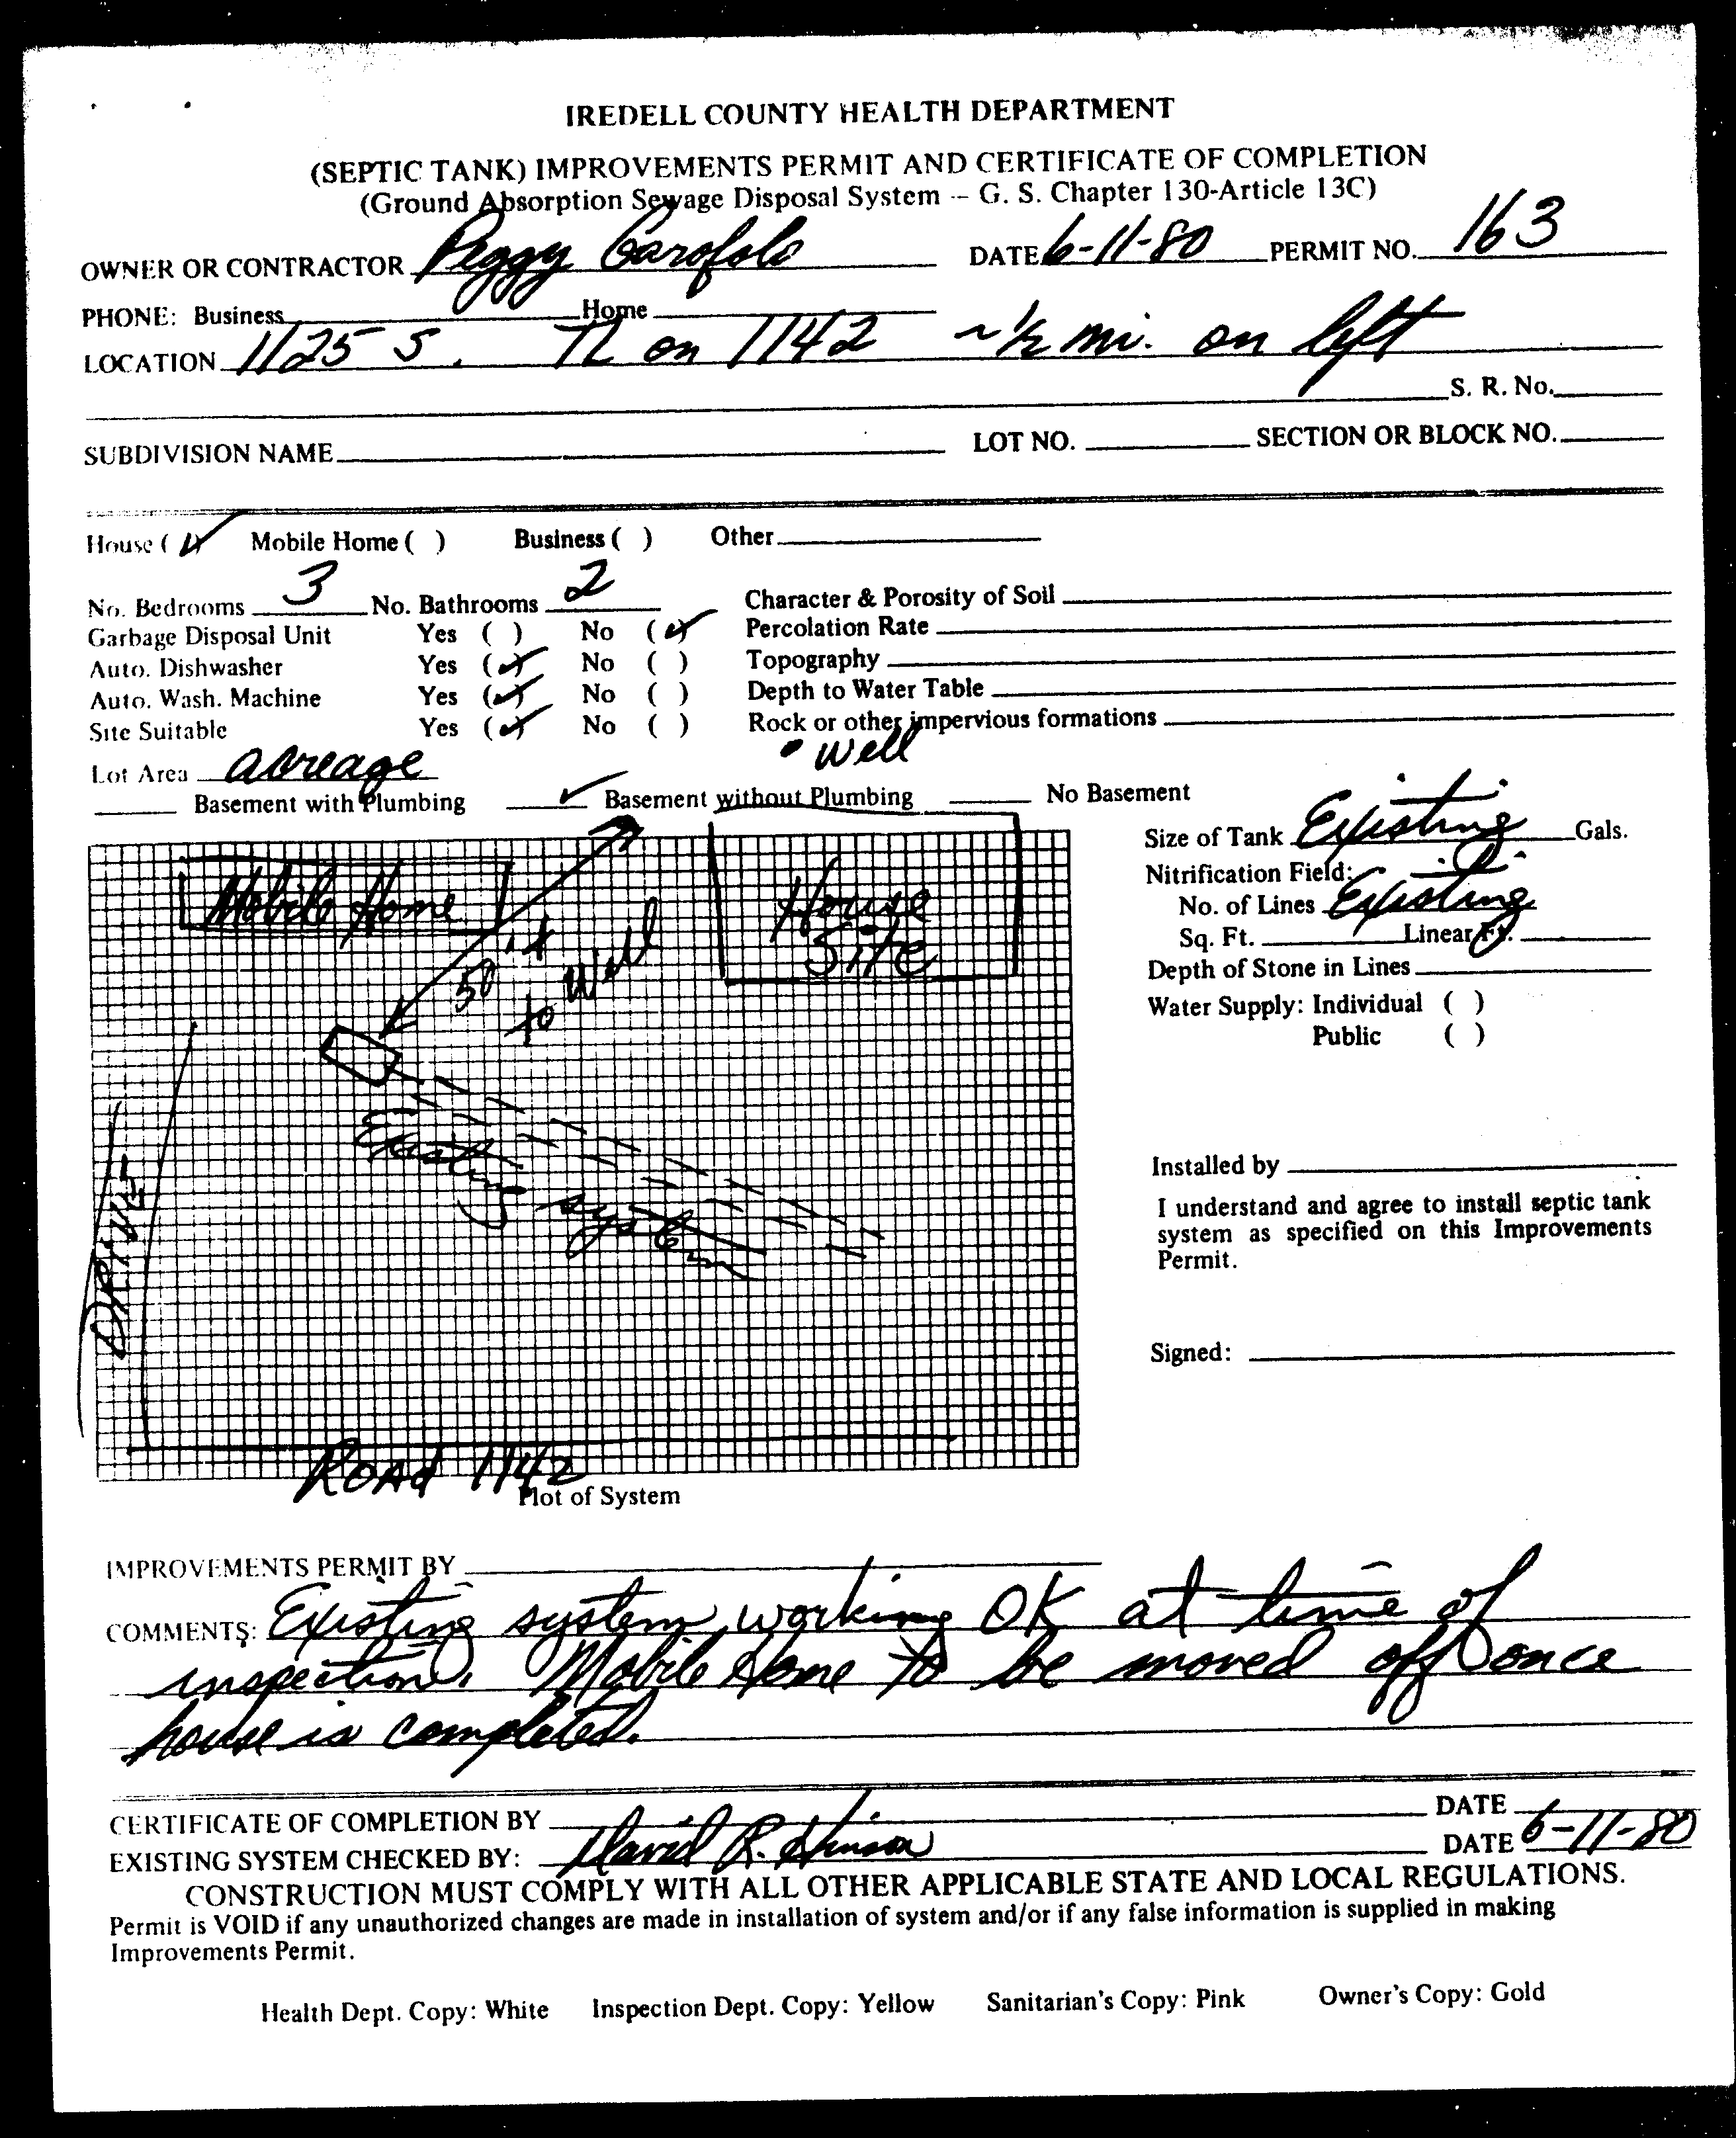 IREDELL COUNTY HEALTH DEPARTMENT
(SEPTIC TANK) IMPROVEMENTS PERMIT AND CERTIFICATE OF COMPLETION
(Ground Absorption Sewage Disposal System -- G. S. Chapter 130-Article 13C)
OWNER OR CONTRACTOR Peggy DATE 6-11-80 PERMIT NO. 163
PHONE: Business Home
LOCATION 1125 S. TL on 1142 ~ 1/2 mi. on left
S. R. No.
SUBDIVISION NAME LOT NO. SECTION OR BLOCK NO.
House (✓) Mobile Home ( ) Business ( ) Other
No. Bedrooms 3 No. Bathrooms 2 Character & Porosity of Soil
Garbage Disposal Unit Yes ( ) No (✓) Percolation Rate
Auto. Dishwasher Yes (✓) No ( ) Topography
Auto. Wash. Machine Yes (✓) No ( ) Depth to Water Table
Site Suitable Yes (✓) No ( ) Rock or other impervious formations
Lot Area acreage
• Well
Basement with Plumbing ✓ Basement without Plumbing No Basement
Mobile Home
House
Site
50
to Well
Existing System
DRIVE
Road 1142
Plot of System
Size of Tank Existing Gals.
Nitrification Field:
No. of Lines Existing
Sq. Ft. Linear Ft.
Depth of Stone in Lines
Water Supply: Individual ( )
Public ( )
Installed by
I understand and agree to install septic tank
system as specified on this Improvements
Permit.
Signed:
IMPROVEMENTS PERMIT BY
COMMENTS: Existing system working OK at time of
inspection. Mobile Home to be moved off once
house is completed.
CERTIFICATE OF COMPLETION BY DATE
EXISTING SYSTEM CHECKED BY: David R. Hinson DATE 6-11-80
CONSTRUCTION MUST COMPLY WITH ALL OTHER APPLICABLE STATE AND LOCAL REGULATIONS.
Permit is VOID if any unauthorized changes are made in installation of system and/or if any false information is supplied in making
Improvements Permit.
Health Dept. Copy: White Inspection Dept. Copy: Yellow Sanitarian's Copy: Pink Owner's Copy: Gold